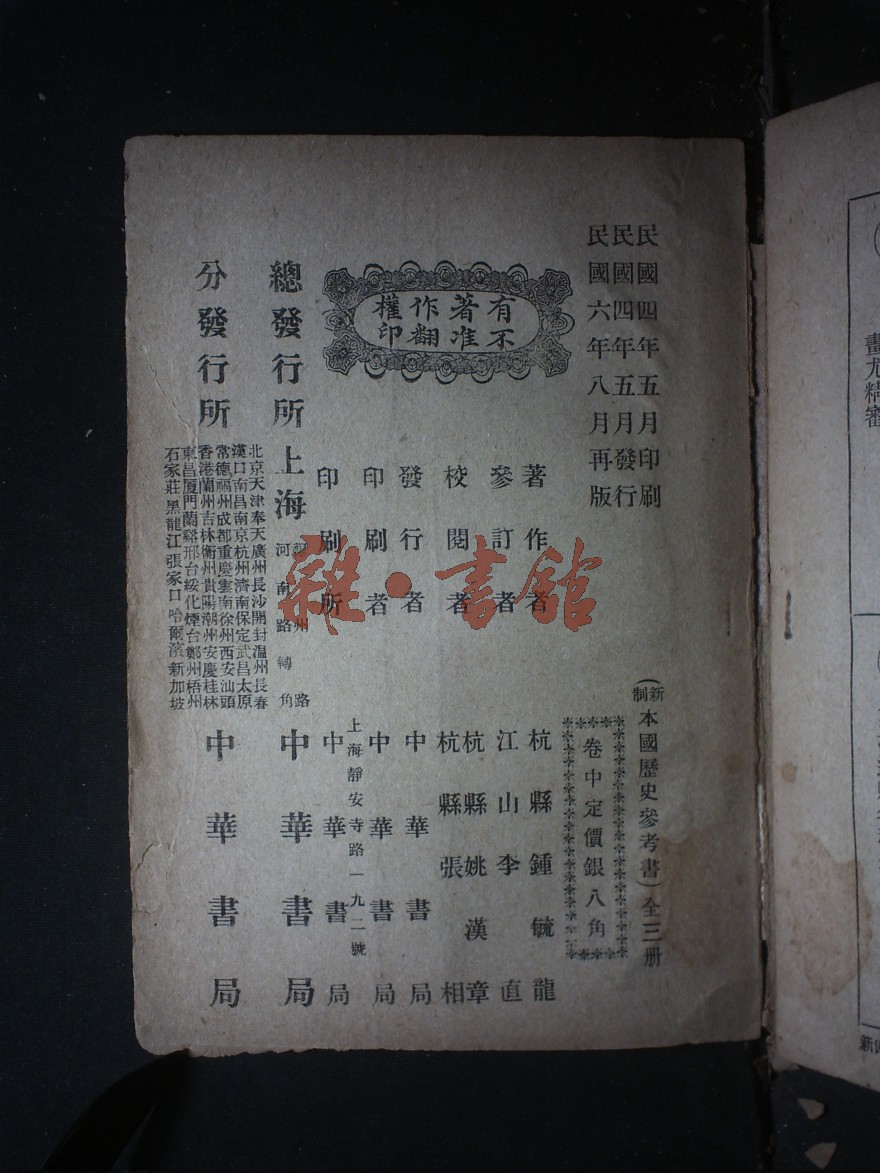 民國四年五月印刷
民國四年五月發行
民國六年八月再版
(新制 本國歷史參考書) 全三册
卷中定價銀八角
有著作權
不准翻印
著作者 杭縣鍾毓龍
參訂者 江山李直
校閱者 杭縣姚漢章
杭縣張相
發行者 中華書局
印刷者 中華書局
印刷所 上海靜安寺路一九二號
中華書局
總發行所 上海 河南路轉角 中華書局
分發行所
北京天津奉天廣州長沙開封溫州長春
漢口南昌南京杭州濟南保定武昌太原
常德福州成都重慶雲南徐州西安汕頭
香港蘭州吉林衡州貴陽潮州安慶桂林
東昌厦門蘭谿邢台綏化煙台鄭州梧州
石家莊黑龍江張家口哈爾濱新加坡
中華書局
雜·書舘
畫尤精審